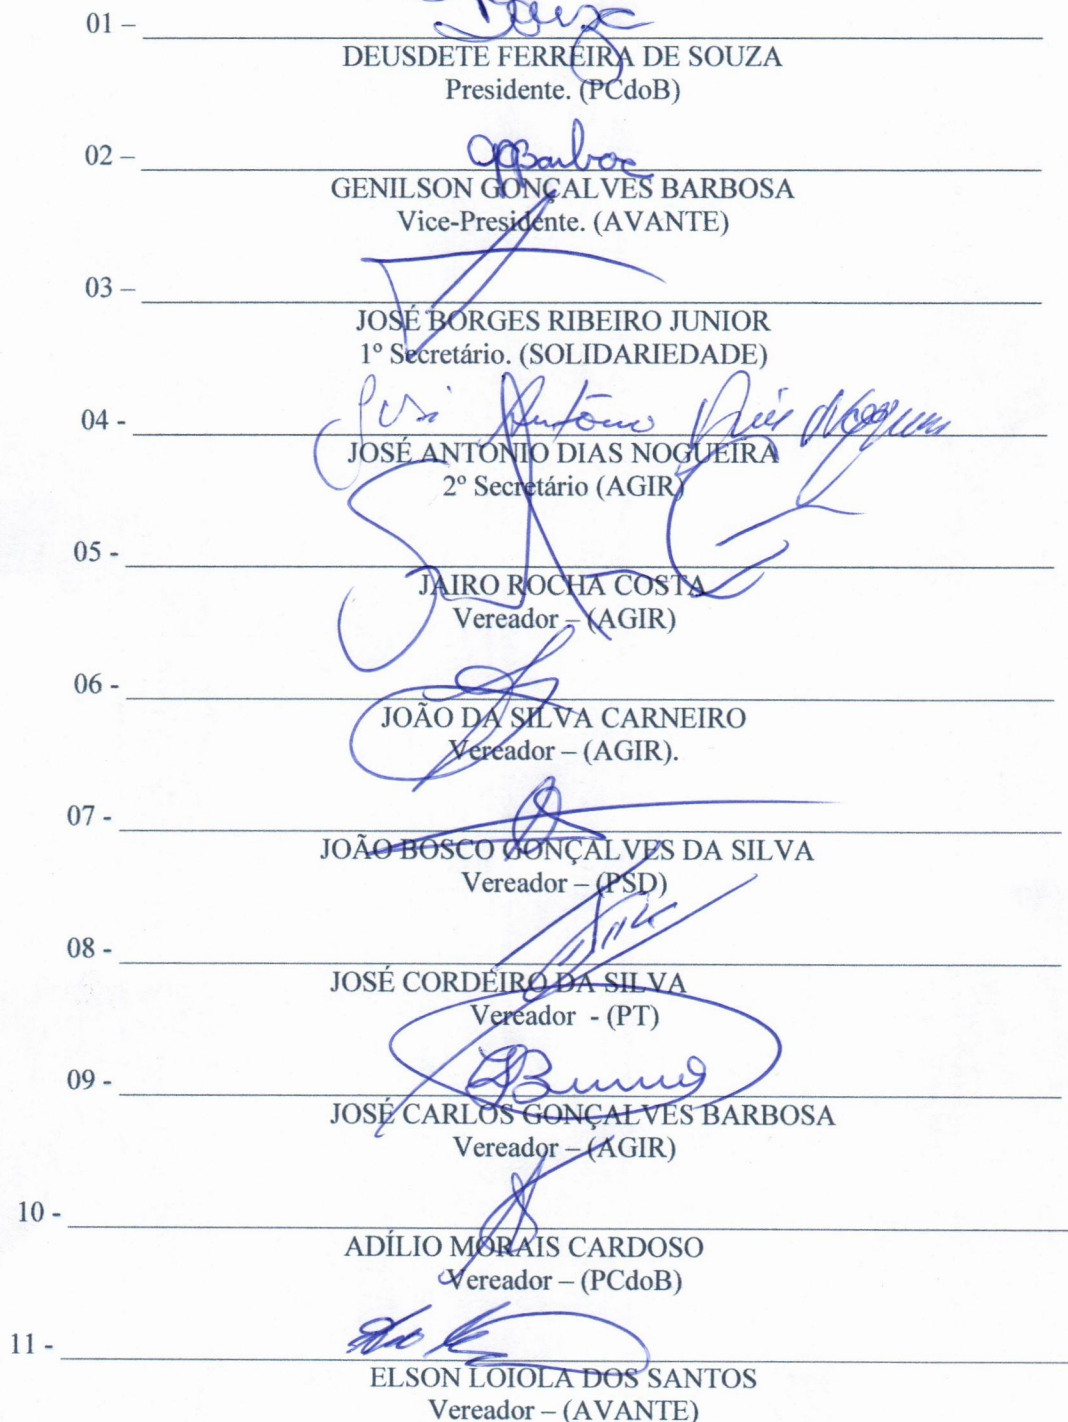 Souza
01 –
DEUSDETE FERREIRA DE SOUZA
Presidente. (PCdoB)
02 –
GENILSON GONÇALVES BARBOSA
Vice-Presidente. (AVANTE)
03 –
JOSÉ BORGES RIBEIRO JUNIOR
1º Secretário. (SOLIDARIEDADE)
José Antônio Dias Nogueira
04 -
JOSÉ ANTONIO DIAS NOGUEIRA
2º Secretário (AGIR)
05 -
JAIRO ROCHA COSTA
Vereador – (AGIR)
06 -
JOÃO DA SILVA CARNEIRO
Vereador – (AGIR).
07 -
JOÃO BOSCO GONÇALVES DA SILVA
Vereador – (PSD)
08 -
JOSÉ CORDEIRO DA SILVA
Vereador - (PT)
09 -
JOSÉ CARLOS GONÇALVES BARBOSA
Vereador – (AGIR)
10 -
ADÍLIO MORAIS CARDOSO
Vereador – (PCdoB)
11 -
ELSON LOIOLA DOS SANTOS
Vereador – (AVANTE)